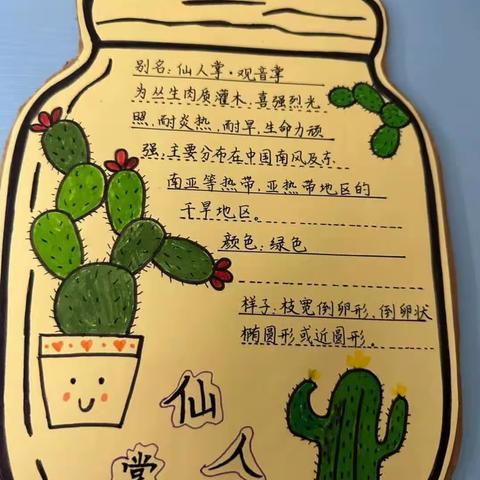 别名:仙人掌·观音掌
为丛生肉质灌木,喜强烈光
照,耐炎热,耐旱,生命力顽
强,主要分布在中国南风及东
南亚等热带,亚热带地区的
干旱地区。
颜色:绿色
样子:枝宽倒卵形,倒卵状
椭圆形或近圆形。
仙
人
掌